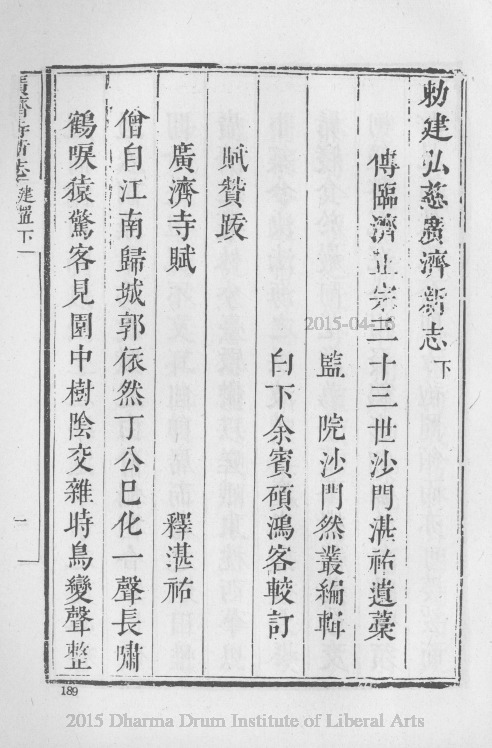 勅建弘慈廣濟新志下
傳臨濟正宗三十三世沙門湛祐遺藁
監院沙門然叢編輯
白下余賓碩鴻客較訂
賦贊跋
廣濟寺賦 釋湛祐
僧自江南歸城郭依然丁公已化一聲長嘯
鶴唳猿驚客見園中樹陰交雜時鳥變聲整
廣濟寺新志 建置下 一
189
2015-04-16
2015 Dharma Drum Institute of Liberal Arts